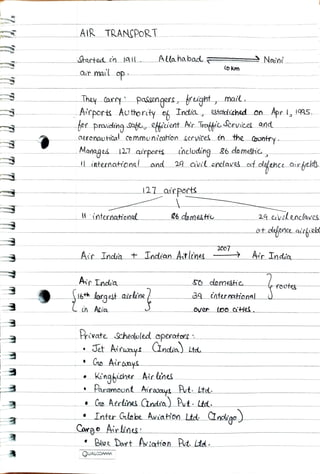 AIR TRANSPORT
Started in 1911. Allahabad → Naini
10 km
air mail op.
They carry: passengers, freight, mail.
Airports Authority of India, established on Apr 1, 1995
for providing safe, efficient Air Traffic Services and
aeronautical communication services in the country.
Manages 127 airports including 86 domestic,
11 international and 29 civil enclaves at defence airfields.
127 airports
11 international 86 domestic 29 civil enclaves
at defence airfields
Air India + Indian Airlines 2007 → Air India
Air India 50 domestic
16th largest airline 39 international routes
in Asia over 100 cities.
Private Scheduled operators:
• Jet Airways (India) Ltd.
• Go Airways
• Kingfisher Airlines
• Paramount Airways Pvt. Ltd.
• Go Airlines (India) Pvt. Ltd.
• Inter Globe Aviation Ltd (Indigo)
Cargo Airlines:
• Blue Dart Aviation Pvt. Ltd.